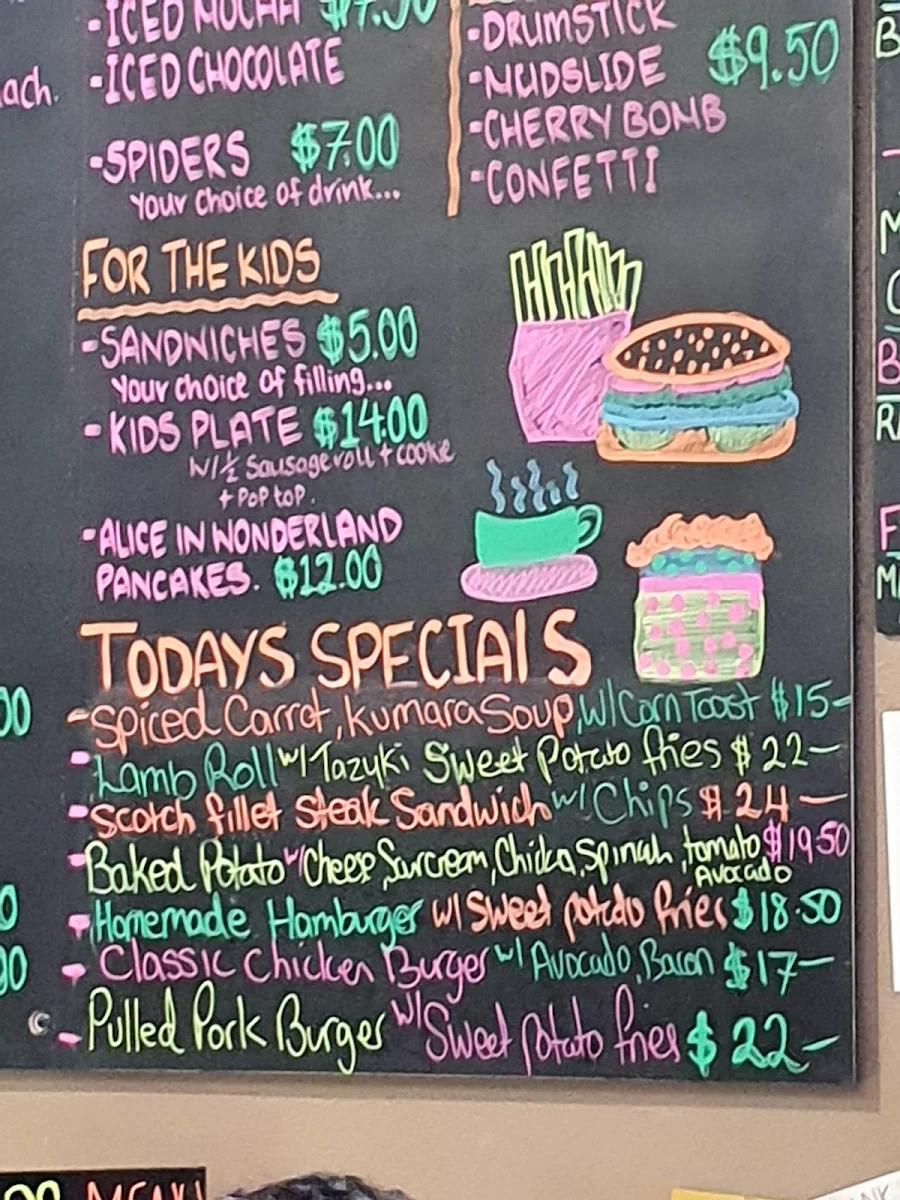 -ICED MOCHA $7.50
-ICED CHOCOLATE
-SPIDERS $7.00
Your choice of drink...
-DRUMSTICK
-MUDSLIDE $9.50
-CHERRY BOMB
-CONFETTI
FOR THE KIDS
-SANDWICHES $5.00
Your choice of filling...
-KIDS PLATE $14.00
W/½ Sausage roll + cookie
+ Pop top.
-ALICE IN WONDERLAND
PANCAKES. $12.00
TODAYS SPECIALS
-Spiced Carrot, Kumara Soup, W/Corn Toast $15-
-Lamb Roll w/ Tazyki Sweet Potato fries $22-
-Scotch fillet steak Sandwich w/ Chips $24-
-Baked Potato w/ Cheese, Surcream, Chicka, Spinah, tomato $19.50
Avocado
-Homemade Hamburger w/ Sweet potato fries $18.50
-Classic Chicken Burger w/ Avocado, Bacon $17-
-Pulled Pork Burger w/ Sweet potato fries $22-